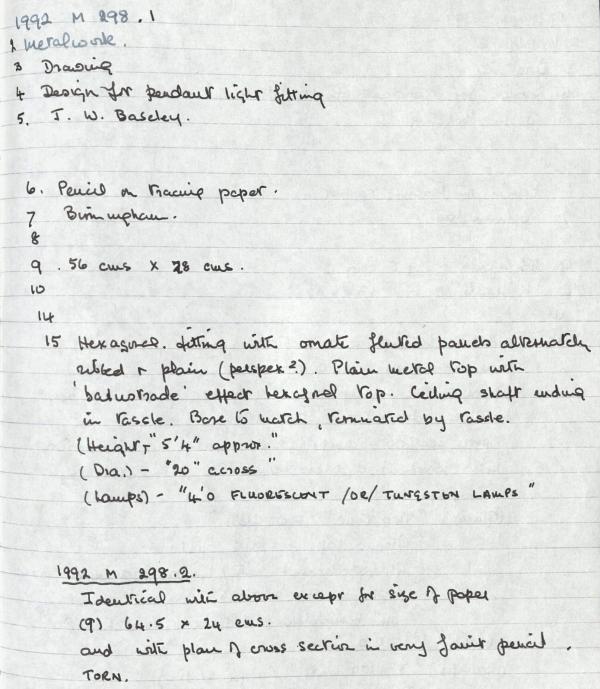 1992 M 298.1
2 Metalwork.
3 Drawing
4 Design for pendant light fitting
5. J. W. Baseley.
6. Pencil on tracing paper.
7 Birmingham.
8
9. 56 cms x 28 cms.
10
14
15 Hexagonal fitting with ornate fluted panels alternately
ribbed + plain (perspex?). Plain metal top with
'balustrade' effect hexagonal top. Ceiling shaft ending
in tassle. Base to match, terminated by tassle.
(Height) - "5'4" approx."
(Dia.) - "20" across"
(Lamps) - "4'0 FLUORESCENT /OR/ TUNGSTON LAMPS"
1992 M 298.2.
Identical with above except for size of paper
(9) 64.5 x 24 cms.
and with plan of cross section in very faint pencil.
TORN.